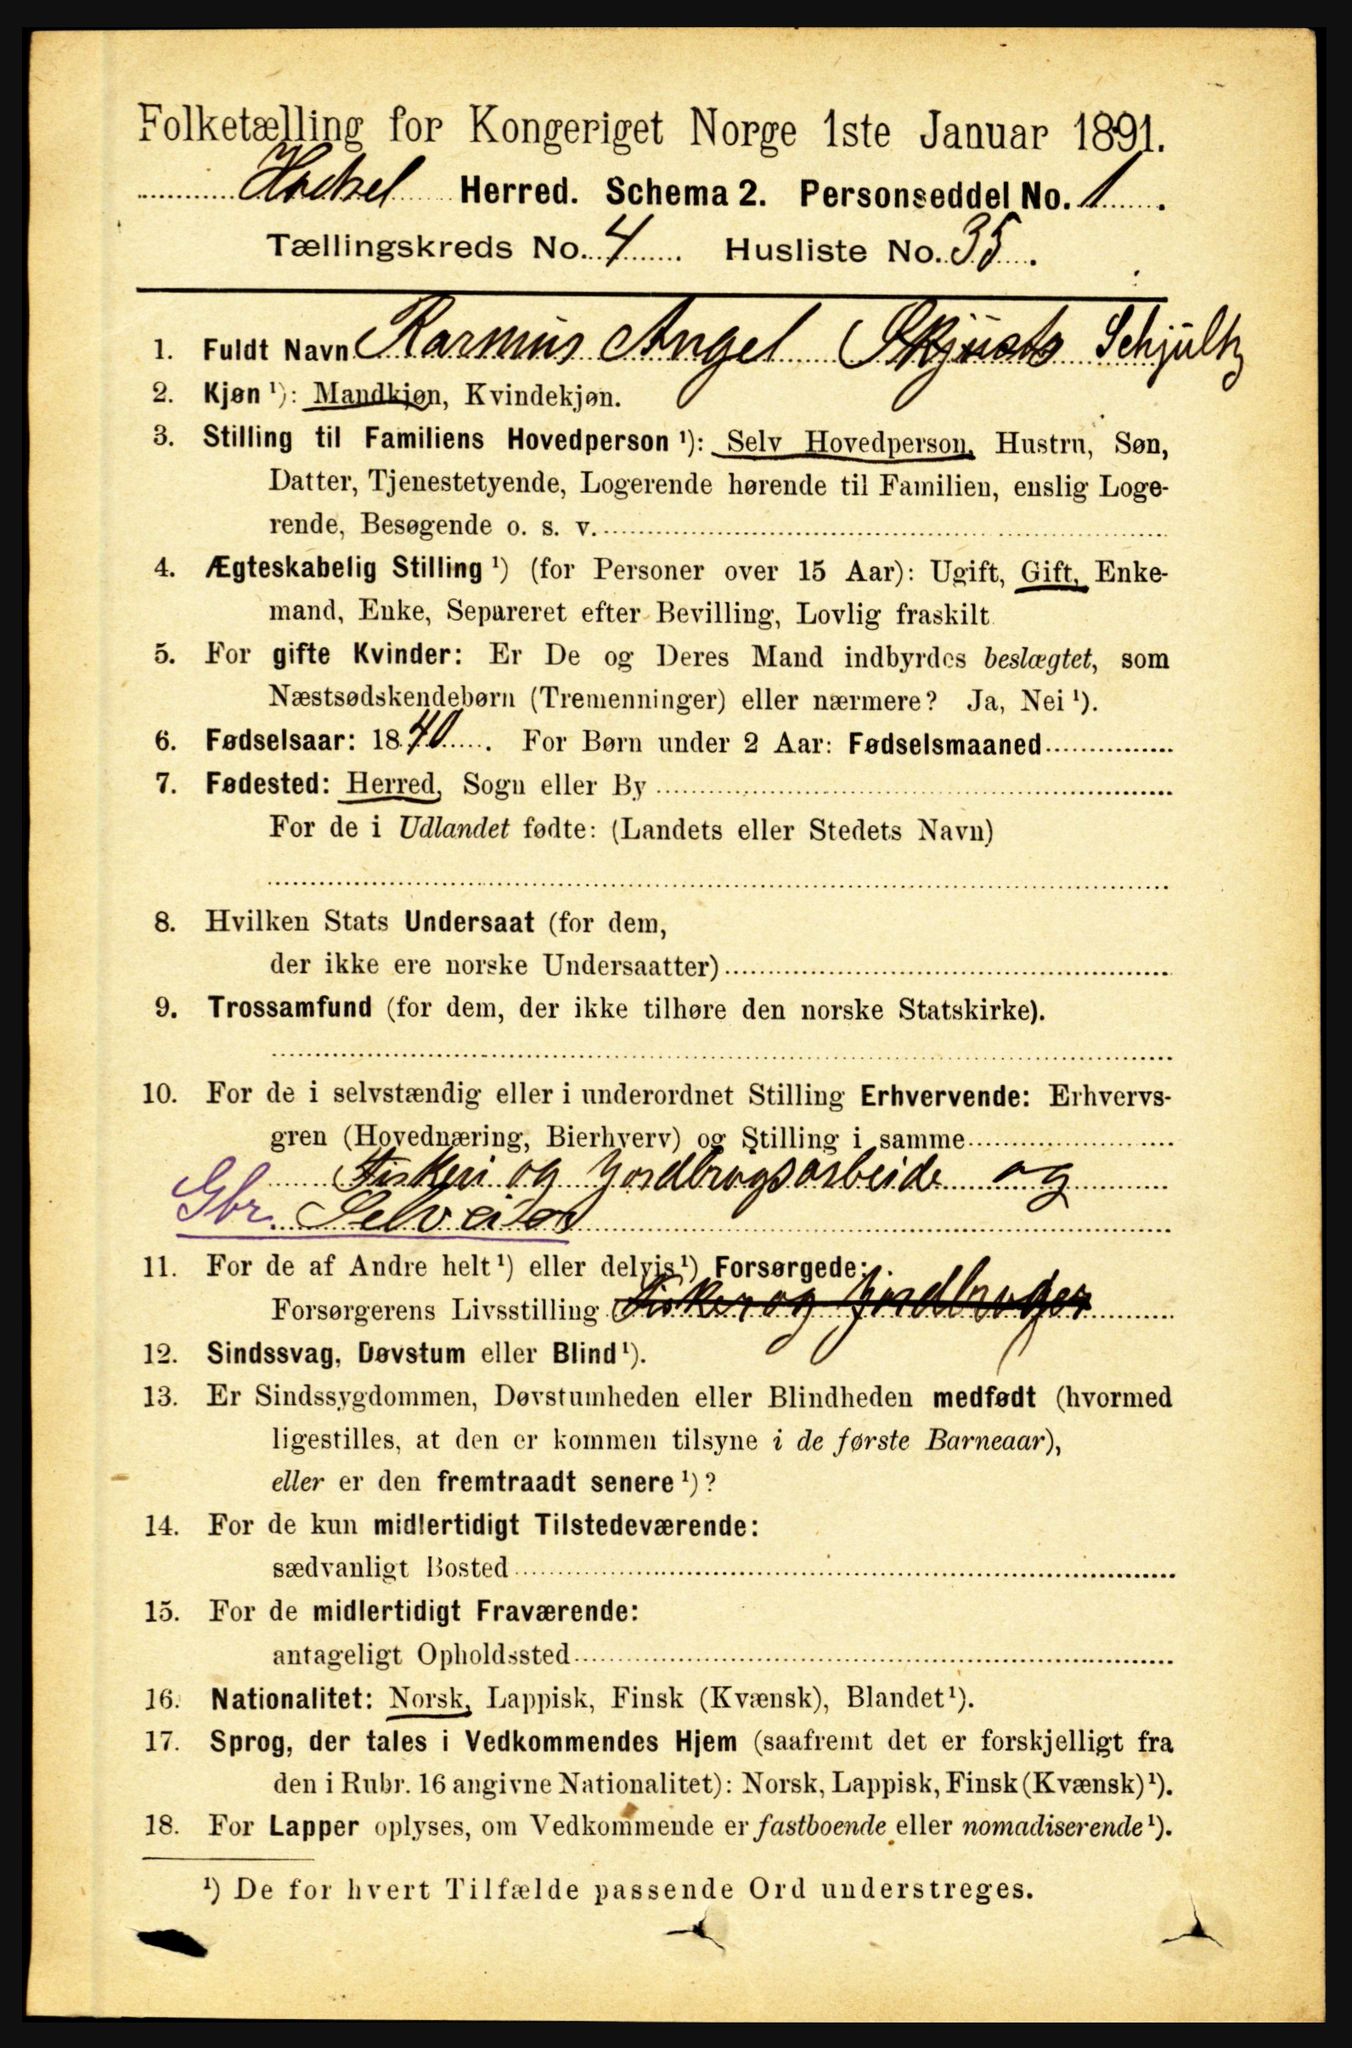 Folketælling for Kongeriget Norge 1ste Januar 1891.
Herred. Schema 2. Personseddel No. 1.
Tællingskreds No. 4. Husliste No. 35.
1. Fuldt Navn Rasmus Angel Schjultz
2. Kjøn ¹): Mandkjøn, Kvindekjøn.
3. Stilling til Familiens Hovedperson ¹): Selv Hovedperson, Hustru, Søn,
Datter, Tjenestetyende, Logerende hørende til Familien, enslig Loge-
rende, Besøgende o. s. v.
4. Ægteskabelig Stilling ¹) (for Personer over 15 Aar): Ugift, Gift, Enke-
mand, Enke, Separeret efter Bevilling, Lovlig fraskilt
5. For gifte Kvinder: Er De og Deres Mand indbyrdes beslægtet, som
Næstsødskendebørn (Tremenninger) eller nærmere? Ja, Nei ¹).
6. Fødselsaar: 1840. For Børn under 2 Aar: Fødselsmaaned
7. Fødested: Herred, Sogn eller By
For de i Udlandet fødte: (Landets eller Stedets Navn)
8. Hvilken Stats Undersaat (for dem,
der ikke ere norske Undersaatter)
9. Trossamfund (for dem, der ikke tilhøre den norske Statskirke).
10. For de i selvstændig eller i underordnet Stilling Erhvervende: Erhvervs-
gren (Hovednæring, Bierhverv) og Stilling i samme
Fiskeri og Jordbrugsarbeide og
Gbr. Selveier
11. For de af Andre helt ¹) eller delvis ¹) Forsørgede:
Forsørgerens Livsstilling Fisker og Jordbruger
12. Sindssvag, Døvstum eller Blind ¹).
13. Er Sindssygdommen, Døvstumheden eller Blindheden medfødt (hvormed
ligestilles, at den er kommen tilsyne i de første Barneaar),
eller er den fremtraadt senere ¹)?
14. For de kun midlertidigt Tilstedeværende:
sædvanligt Bosted
15. For de midlertidigt Fraværende:
antageligt Opholdssted
16. Nationalitet: Norsk, Lappisk, Finsk (Kvænsk), Blandet ¹).
17. Sprog, der tales i Vedkommendes Hjem (saafremt det er forskjelligt fra
den i Rubr. 16 angivne Nationalitet): Norsk, Lappisk, Finsk (Kvænsk) ¹).
18. For Lapper oplyses, om Vedkommende er fastboende eller nomadiserende ¹).
¹) De for hvert Tilfælde passende Ord understreges.